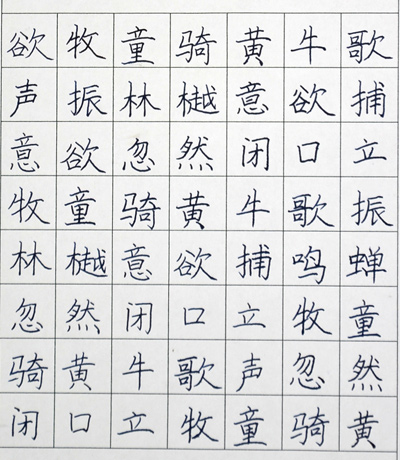 欲牧童骑黄牛歌
声振林樾意欲捕
意欲忽然闭口立
牧童骑黄牛歌振
林樾意欲捕鸣蝉
忽然闭口立牧童
骑黄牛歌声忽然
闭口立牧童骑黄